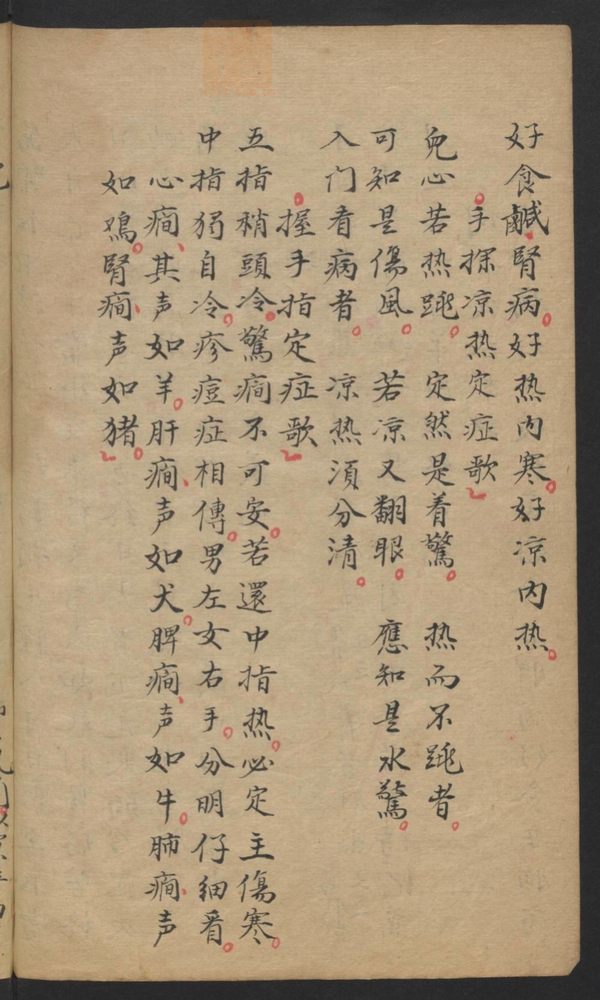 好食鹹腎病好热内寒好凉内热
手探凉热定症歌
兒心若热跳 定然是着驚 热而不跳者
可知是傷風 若凉又翻眼 應知是水驚
入门看病者 凉热須分清
握手指定症歌
五指稍頭冷驚癇不可安若還中指热必定主傷寒
中指獨自冷疹痘症相傳男左女右手分明仔细看
心癇其声如羊肝癇声如犬脾癇声如牛肺癇声
如鸡腎癇声如猪